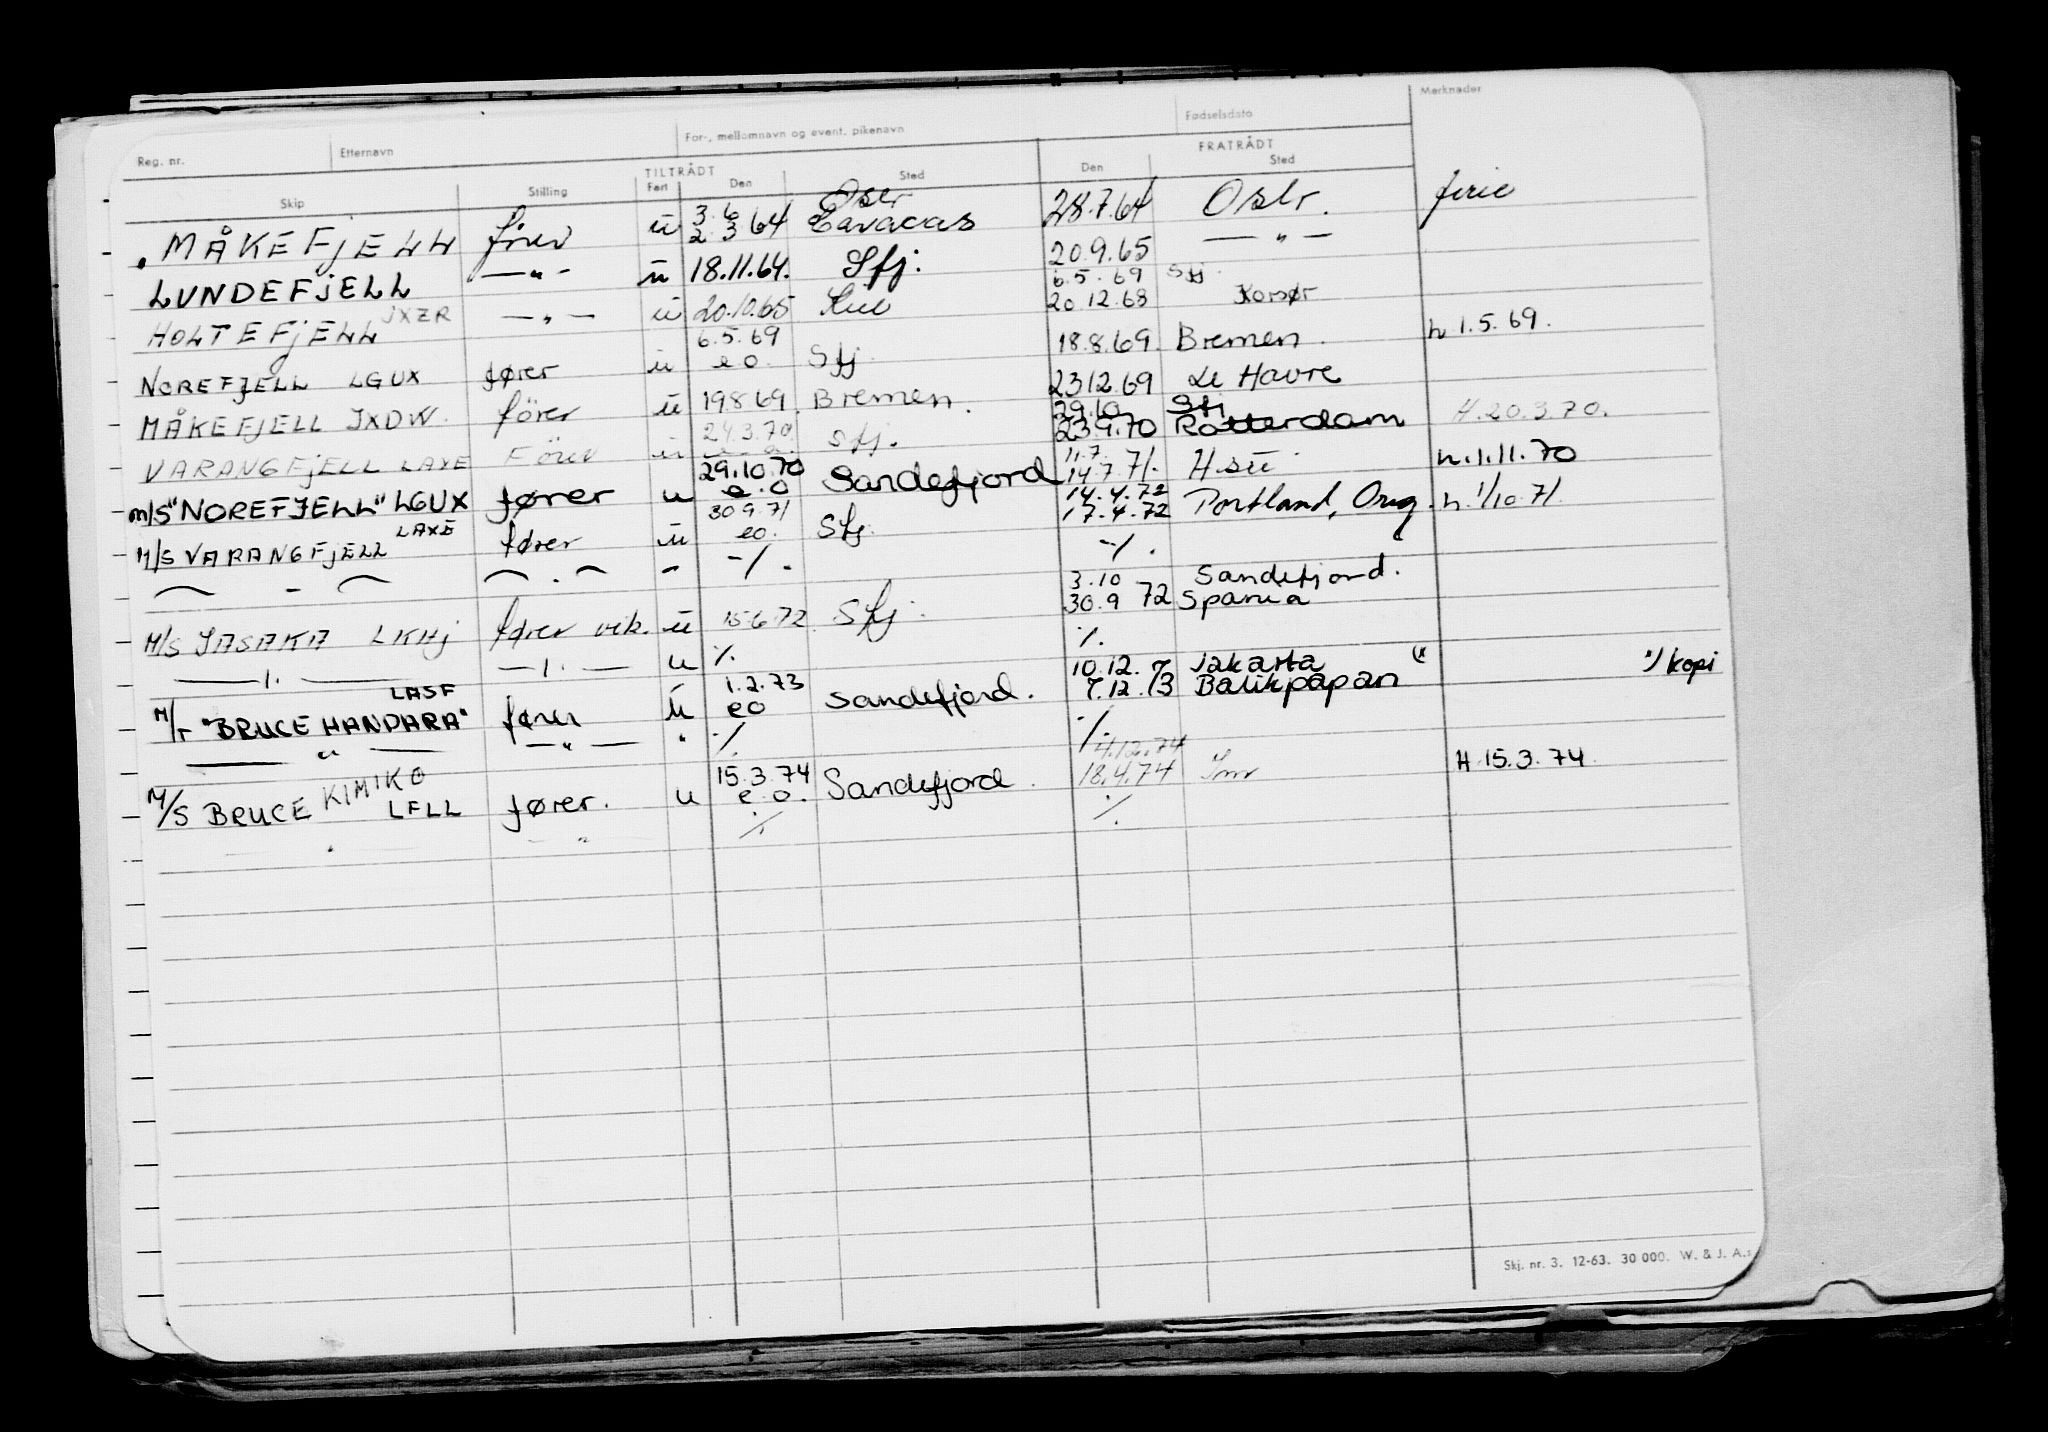 Reg. nr. Etternavn For-, mellomnavn og event. pikenavn Fødselsdato Merknader
TILTRÅDT FRATRÅDT
Skip Stilling Fart Den Sted Den Sted
MÅKEFJELL fører u 3.6 2.3 64 Oslo Caracas 28.7.64 Oslo. ferie
LUNDEFJELL —"- u 18.11.64. Sfj. 20.9.65 —"—
HOLTEFJELL JXZR —"— u 20.10.65 Kiel 6.5.69 Sfj. 20.12.68 Korsør
NOREFJELL LGUX fører u 6.5.69 e o. Sfj. 18.8.69. Bremen. h 1.5.69.
MÅKEFJELL JXDW. fører u 19869. Bremen. 2312.69 Le Havre
VARANGFJELL LAXE Fører u 24.3.70. e.o. Sfj. 29.10 23.9.70 Sfj Rotterdam H.20.3.70.
m/S "NOREFJELL" LGUX fører u 29.10.70 e.o Sandefjord 11.7. 14.7.71. h.1.11.70
M/S VARANGFJELL LAXE fører u 30.9.71 eo. Sfj. 14.4.72 17.4.72 Portland, Oreg. h. 1/10.71.
— - — —.— - -/. -/.
M/S JASAKA LKHJ fører vik. u 15.6.72. Sfj. 3.10 30.9 72 Sandefjord. Spania
—"— —"— u /. /.
M/T "BRUCE HANDARA" LASF fører u 1.2.73 eo Sandefjord. 10.12. 7.12.73 Jakarta Balikpapan *) *) kopi
—"— —"— " /. /.
M/S BRUCE KIMIKO LFLL fører. u 15.3.74 e.o. Sandefjord. 4.12.74 18.4.74 H.15.3.74.
" " /. /.
Skj. nr. 3. 12-63. 30 000. W. & J. A.s